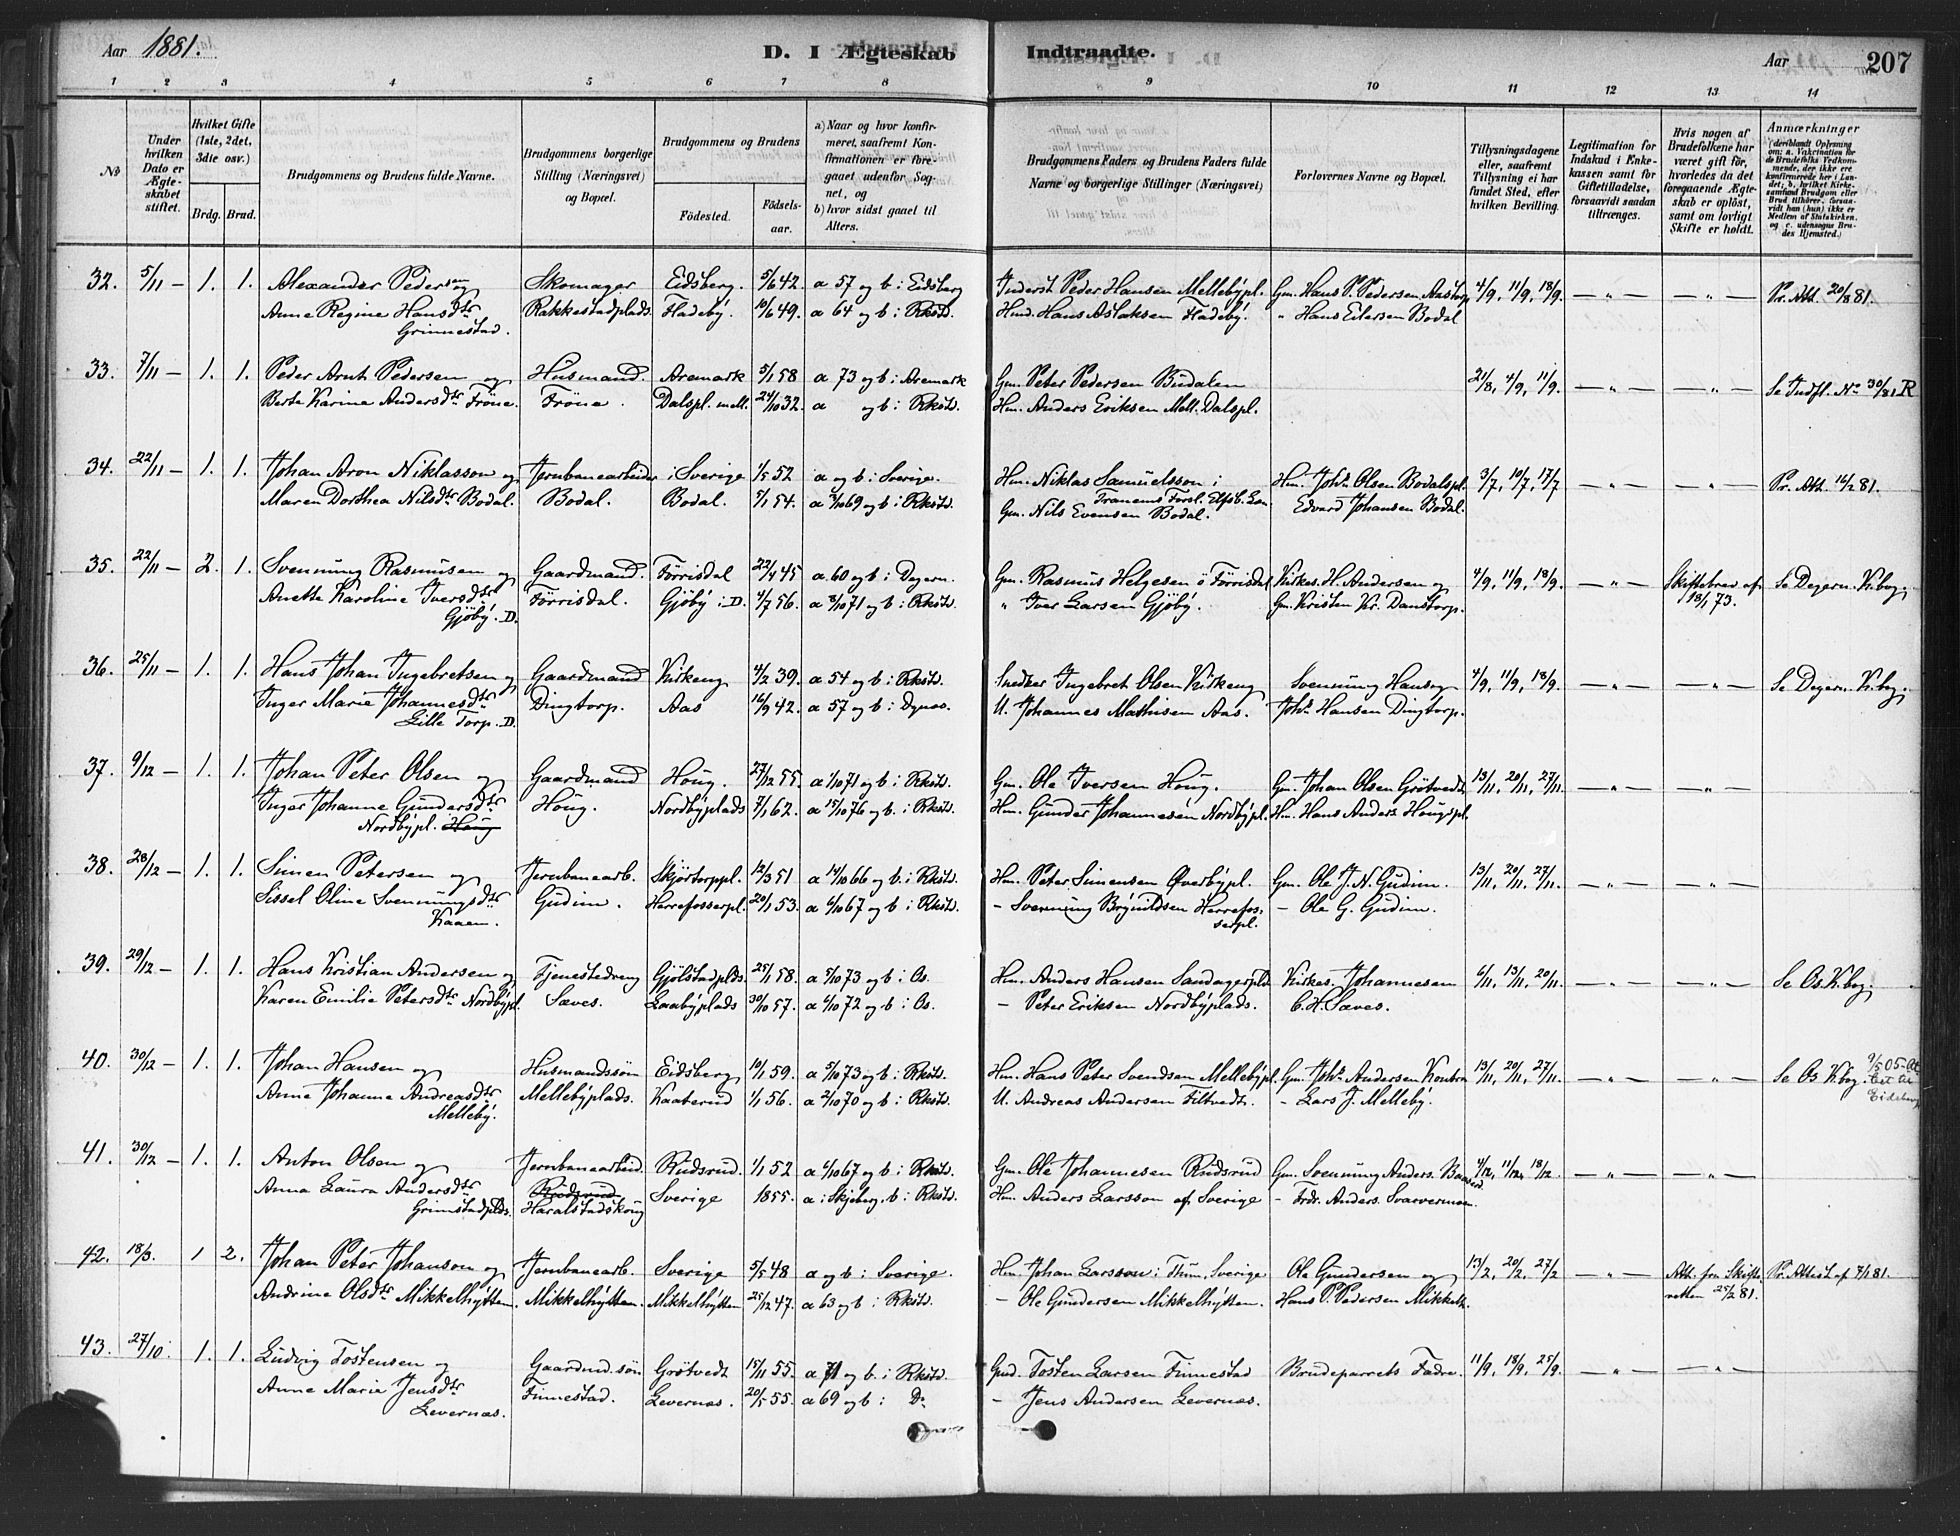 Aar 1881. D. I Ægteskab Indtraadte. Aar 207
1 2 3 4 5 6 7 8 9 10 11 12 13 14
No
Under hvilken Dato er Ægteskabet stiftet.
Hvilket Gifte (1ste, 2det, 3die osv.)
Brdg. Brud.
Brudgommens og Brudens fulde Navne.
Brudgommens borgerlige Stilling (Næringsvei) og Bopæl.
Brudgommens og Brudens
Födested. Födselsaar.
a) Naar og hvor Konfirmeret, saafremt Konfirmationen er foregaaet udenfor Sognet, og
b) hvor sidst gaaet til Alters.
Brudgommens Faders og Brudens Faders fulde Navne og borgerlige Stillinger (Næringsvei)
Forlovernes Navne og Bopæl.
Tillysningsdagene eller, saafremt Tillysning ei har fundet Sted, efter hvilken Bevilling.
Legitimation for Indskud i Enkekassen samt for Giftetilladelse, forsaavidt saadan tiltrænges.
Hvis nogen af Brudefolkene har været gift för, hvorledes da det foregaaende Ægteskab er oplöst, samt om lovligt Skifte er holdt.
Anmærkninger
32. 5/11 — 1. 1. Alexander Pedersen og Skomager Eidsberg. 5/6 42. a 57 og b: Eidsberg Inderst Peder Hansen Mellebypl. Gm. Hans P. Pedersen 4/9, 11/9, 18/9. — „ — — „ — Pr. Att. 20/8 81.
Anne Regine Hansdtr Rakkestadplads. Fladeby. 10/6 49. a 64 og b: Rkst. Husm. Hans Aslaksen Fladeby. „ Hans Eilersen Bodal
Grinnestad.
33. 7/11 — 1. 1. Peder Arnt Pedersen og Husmand. Aremark 5/1 58 a 73 og b: Aremark Gm. Peter Pedersen Budalen 21/8, 4/9, 11/9. — „ — — „ — Se Indfl. No 30/81 R
Berte Karine Andersdtr Fröne. Fröne. Dalspl. mell. 24/10 32. a og b: Rkst. Hm. Anders Eriksen Mell. Dalspl.
34. 22/11 — 1. 1. Johan Aron Niklasson og Jernbanearbeider i Sverige 1/5 52 a og b: Sverige. Hm. Niklas Samuelsson i Hm. Johs Olsen Bodalspl. 3/7, 10/7, 17/7 — „ — — „ — Pr. Att. 16/2 81.
Maren Dorthea Nilsdtr Bodal. Bodal. Bodal. 5/1 54. a 3/10 69 og b: Rkst. Edvard Johansen Bodal.
Gm. Nils Evensen Bodal.
35. 22/11 — 2. 1. Svennung Rasmusen og Gaardmand. Förrisdal 22/4 45 a 60 og b: Degern. Gm. Rasmus Helgesen i Förrisdal Kirkes. H. Andersen og 4/9, 11/9, 18/9. — „ — Skiftebrev af Se Degern. K.bog.
Anette Karoline Iversdtr Förrisdal. Gjöby i D. 4/7 56. a 8/10 71 og b: Rkst. „ Iver Larsen Gjöby. Gm. Kristen Kr. Danstorp. 18/1 73.
Gjöby. D.
36. 25/11 — 1. 1. Hans Johan Ingebretsen og Gaardmand Kirkeng 4/2 39. a 54 og b: Rkst. Snedker Ingebret Olsen Kirkeng Svennung Hans og 4/9, 11/9, 18/9. — „ — — „ — Se Degern. K.bog.
Inger Marie Johannesdtr Dingtorp. Aas 16/9 42. a 57 og b: Dgnæs. U. Johannes Mathisen Aas. Johs Hansen Dingtorp.
Lille Torp. D.
37. 9/12 — 1. 1. Johan Peter Olsen og Gaardmand Houg. 27/12 55. a 1/10 71 og b: Rkst. Gm. Ole Iversen Houg. Gm. Johan Olsen Grötvedt 13/11, 20/11, 27/11. — „ — — „ —
Inger Johanne Gundersdtr Houg. Nordbyplads 7/1 62. a 15/10 76 og b: Rkst. Hm. Gunder Johannesen Nordbypl. Hm. Hans Anders. Hougspl.
Nordbypl. Houg
38. 28/12 — 1. 1. Simen Petersen og Jernbanearb. Skjörtorppl. 12/3 51 a 14/10 66 og b: Rkst. Hm. Peter Simensen Øverbypl. Gm. Ole J. N. Gudim. 13/11, 20/11, 27/11. — „ — — „ —
Sissel Oline Svennungsdtr Gudim. Herrefosserpl. 20/1 53. a 6/10 67 og b: Rkst. - Svennung Brynildsen Herrefosserpl. - Ole G. Gudim.
Kaaen.
39. 29/12 — 1. 1. Hans Kristian Andersen og Tjenestedreng Gjölstadplds. 25/1 58. a 5/10 73 og b: Os. Hm. Anders Hansen Sandagerplds Kirkes. Johannesen 6/11, 13/11, 20/11. — „ — — „ — Se Os K.bog.
Karen Emilie Petersdtr Nordbypl. Sæves. Laabyplads 30/10 57. a 6/10 72 og b: Os. - Peter Eriksen Nordbyplads. C. H. Sæves.
40. 30/12 — 1. 1. Johan Hansen og Husmandssön Eidsberg 10/1 59. a 5/10 73 og b: Rkst. Hm. Hans Peter Svendsen Mellebypl. Gm. Johs Andersen 13/11, 20/11, 27/11. — „ — — „ — Se Os K.bog.
Anne Johanne Andreasdtr Mellebyplads. Kaaterud 1/1 56. a 2/10 70 og b: Rkst. U. Andreas Andersen Filtvedt. - Lars J. Melleby.
Melleby.
41. 30/12 — 1. 1. Anton Olsen og Jernbanearbeid. Rudsrud. 1/1 52 a 6/10 67 og b: Rkst. Gm. Ole Johannesen Rudsrud Gm. Svennung Anders. 4/12, 11/12, 18/12. — „ — — „ —
Anna Laura Andersdtr Rudsrud Sverige 1855. a i Skjeberg, b: Rkst. Hm. Anders Larsson af Sverige - Frdr. Anders. Svarvermoen.
Grimstadplds. Haralstadskoug
42. 18/3. 1 2. Johan Peter Johanson og Jernbanearb. Sverige 5/5 48 a og b: Sverige. Hm. Johan Larsson i Thun, Sverige Ole Gundersen og 13/2, 20/2, 27/2 — „ — Att. fra Skifteretten 25/2 81. Pr. Attest af 7/1 81.
Andrine Olsdtr Mikkelhytten. Mikkelhytten. Mikkelhytten 25/12 47. a 63 og b: Rkst. - Ole Gundersen Mikkelhytten. Hans P. Pedersen Mikkelh.
43. 27/10. 1. 1. Ludvig Tostensen og Gaardmd. sön Grötvedt 15/11 55. a 71 og b: Rkst. Gmd. Tosten Larsen Finnestad Brudeparrets Fædre. 11/9, 18/9, 25/9. — „ — — „ —
Anne Marie Jensdtr Finnestad. Levernæs. 20/5 55. a 69 og b: Do - Jens Andersen Levernæs.
Levernæs.